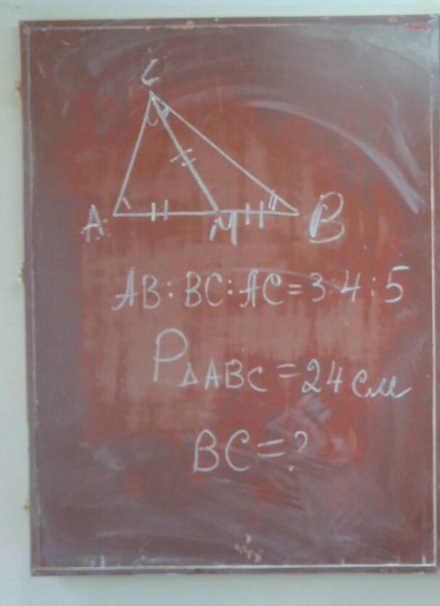 C
A M B
AB:BC:AC=3:4:5
P△ABC=24 см
BC=?